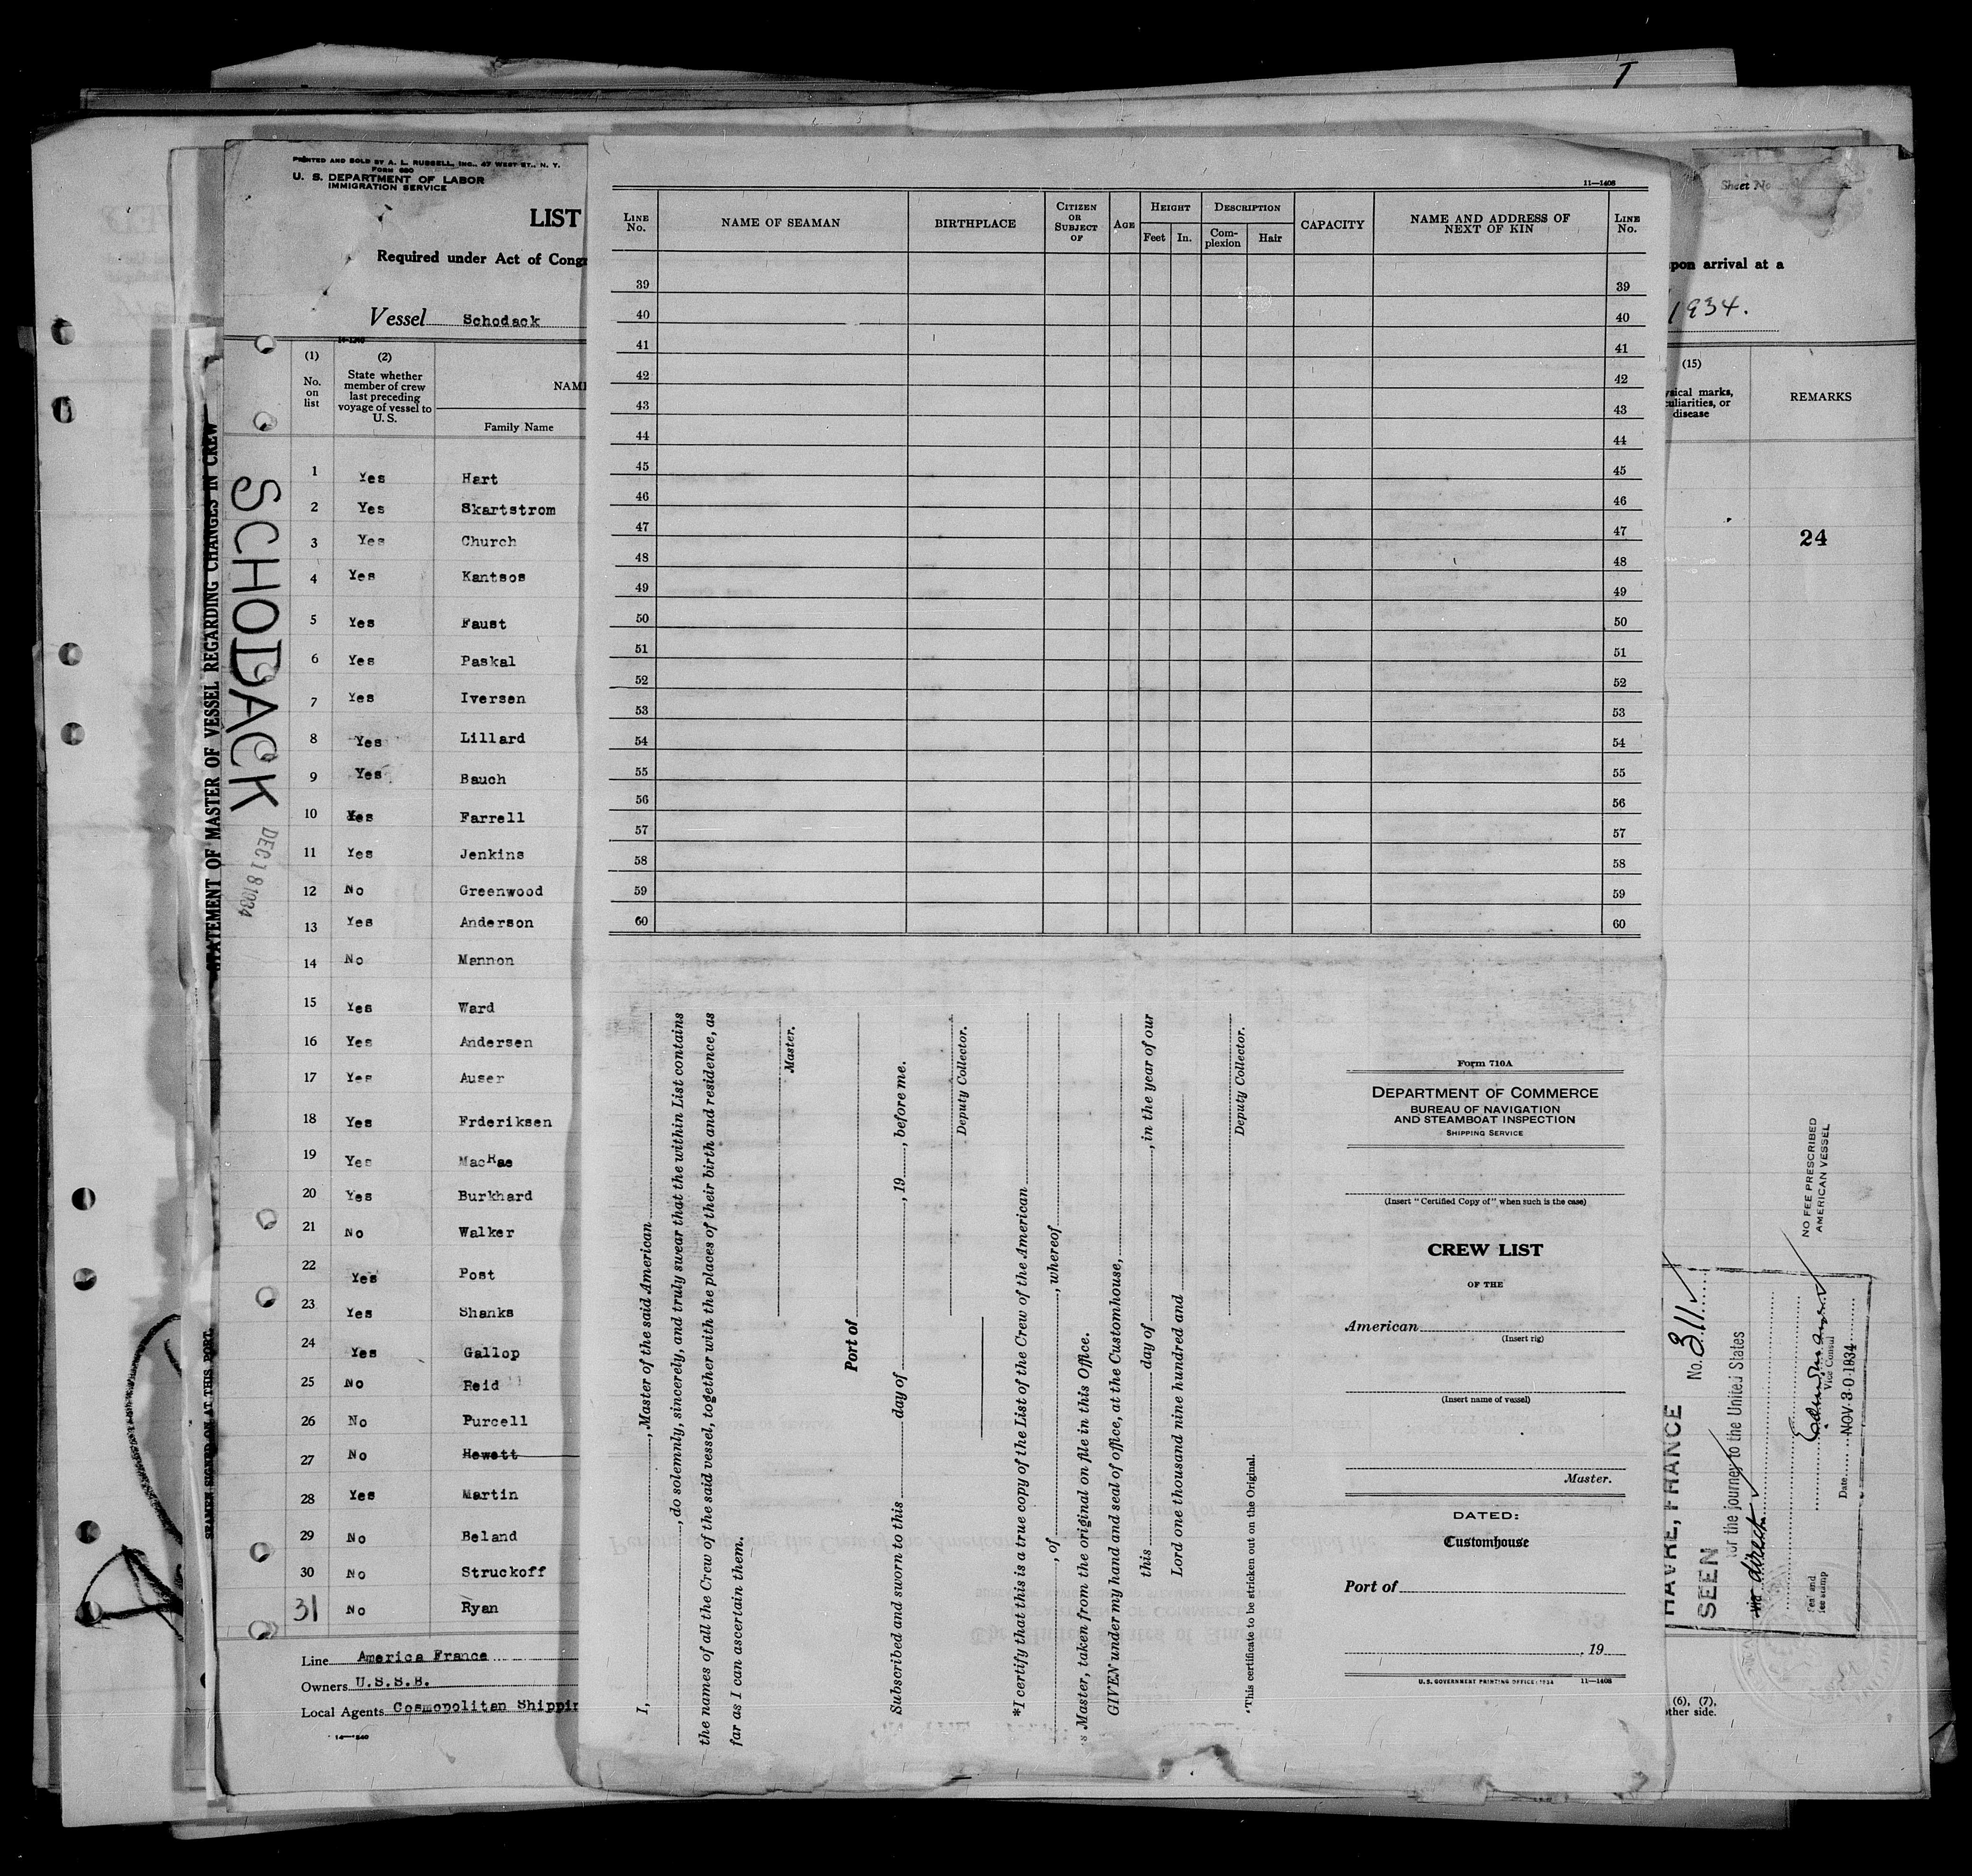 T
PRINTED AND SOLD BY A. L. RUSSELL, INC., 47 WEST ST., N. Y.
FORM 680
U. S. DEPARTMENT OF LABOR
IMMIGRATION SERVICE
LIST
Required under Act of Congr
Vessel Schodack
14-1240
(1) (2)
No. on list
State whether member of crew last preceding voyage of vessel to U. S.
NAM
Family Name
1 Yes Hart
2 Yes Skartstrom
3 Yes Church
4 Yes Kantsos
5 Yes Faust
6 Yes Paskal
7 Yes Iversen
8 Yes Lillard
9 Yes Bauch
10 Yes Farrell
11 Yes Jenkins
12 No Greenwood
13 Yes Anderson
14 No Mannon
15 Yes Ward
16 Yes Andersen
17 Yes Auser
18 Yes Frderiksen
19 Yes MacRae
20 Yes Burkhard
21 No Walker
22 Yes Post
23 Yes Shanks
24 Yes Gallop
25 No Reid
26 No Purcell
27 No Hewett
28 Yes Martin
29 No Beland
30 No Struckoff
31 No Ryan
Line America France
Owners U.S.S.B.
Local Agents Cosmopolitan Shippin
14-1240
SCHODACK
DEC 18 1934
STATEMENT OF MASTER OF VESSEL REGARDING CHANGES IN CREW
SEAMEN SIGNED ON AT THIS PORT.
11—1408
LINE No.
NAME OF SEAMAN
BIRTHPLACE
CITIZEN OR SUBJECT OF
AGE
HEIGHT
Feet In.
DESCRIPTION
Complexion Hair
CAPACITY
NAME AND ADDRESS OF NEXT OF KIN
LINE No.
39 39
40 40
41 41
42 42
43 43
44 44
45 45
46 46
47 47
48 48
49 49
50 50
51 51
52 52
53 53
54 54
55 55
56 56
57 57
58 58
59 59
60 60
I, , Master of the said American
, do solemnly, sincerely, and truly swear that the within List contains
the names of all the Crew of the said vessel, together with the places of their birth and residence, as
far as I can ascertain them.
Master.
Port of
Subscribed and sworn to this day of , 19 , before me.
Deputy Collector.
*I certify that this is a true copy of the List of the Crew of the American
, of , whereof
s Master, taken from the original on file in this Office.
GIVEN under my hand and seal of office, at the Customhouse,
this day of , in the year of our
Lord one thousand nine hundred and
Deputy Collector.
*This certificate to be stricken out on the Original.
Form 710A
DEPARTMENT OF COMMERCE
BUREAU OF NAVIGATION
AND STEAMBOAT INSPECTION
SHIPPING SERVICE
(Insert "Certified Copy of" when such is the case)
CREW LIST
OF THE
American
(Insert rig)
(Insert name of vessel)
Master.
DATED:
Customhouse
Port of
, 19
U. S. GOVERNMENT PRINTING OFFICE: 1934 11—1408
Sheet No.
pon arrival at a
1934.
(15)
ysical marks,
culiarities, or
disease
REMARKS
24
NO FEE PRESCRIBED
AMERICAN VESSEL
HAVRE, FRANCE No. 311
SEEN
for the journey to the United States
via direct
Vice Consul
Date NOV 30 1934
Fee and
fee stamp
(6), (7),
other side.